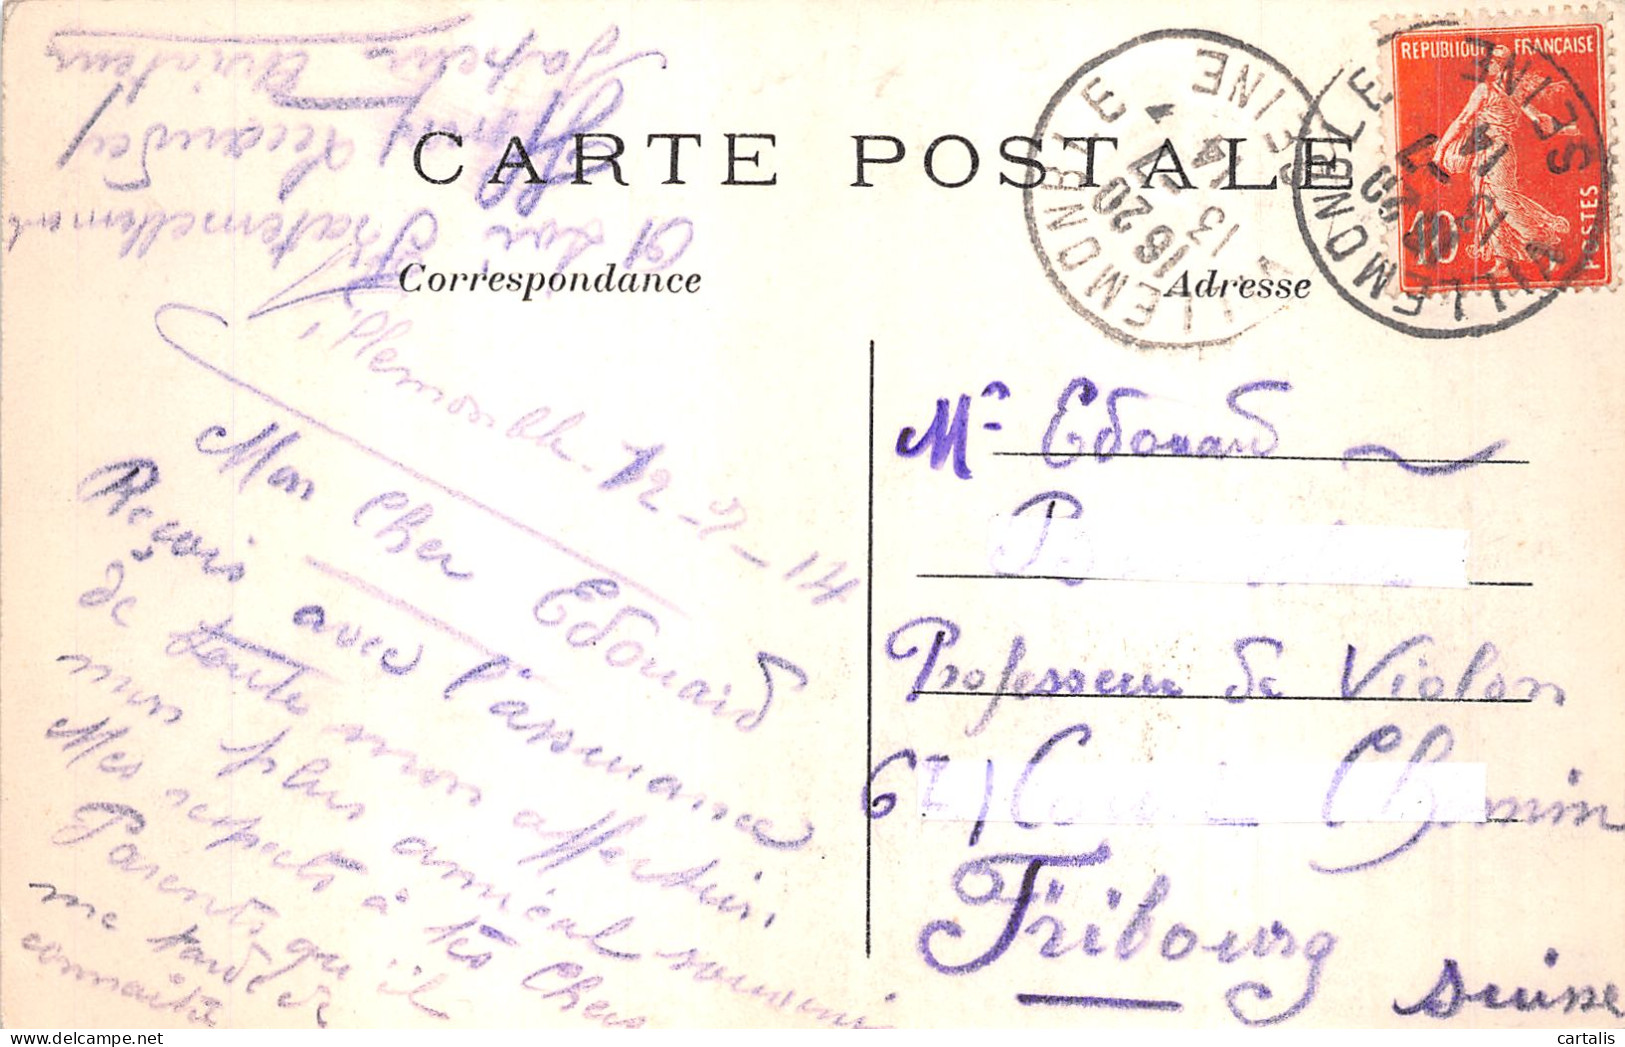 CARTE POSTALE
Correspondance
Adresse
REPUBLIQUE FRANÇAISE
10
POSTES
VILLEMONBLE
SEINE
16 20
13 7
14
VILLEMONBLE
SEINE
13 7
14
Villemomble 12-7-14
Mon Cher Edouard
Reçois avec l'assurance
de toute mon affection
mon plus amical souvenir
Mes respects à tes Chers
Parents qu'il
me tarde de
connaître
A toi Fraternellement
Mr Edouard
Professeur de Violon
Chemin
Fribourg
Suisse
cartalis